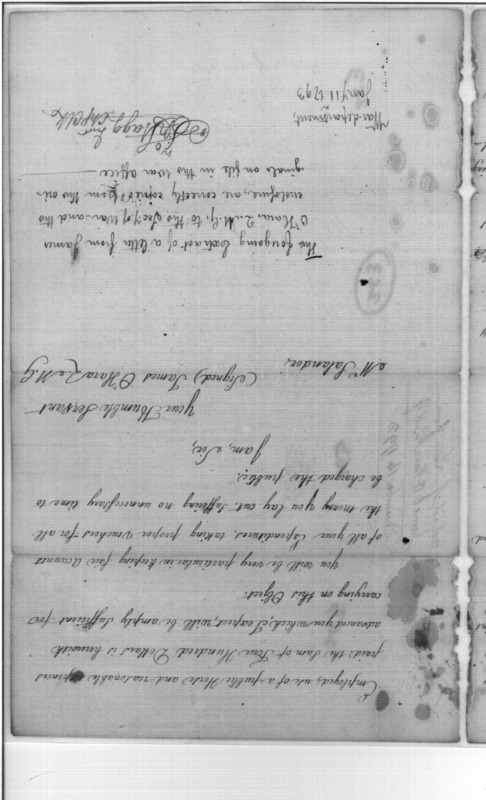 Employed, use of a public Horse and reasonable expences
paid; the Sum of Four Hundred Dollars is herewith
advanced you which, I expect, will be amply sufficient for
carrying on this Object.
you will be very particular in keeping fair Accounts
of all your Expenditures, taking proper vouchers for all
the money you lay out, suffering no unnecessary time to
be charged the public.
I am, Sir,
Your Humble Servant
(Signed) James O'Hara Q. M. G
Mr. Salander,
The foregoing Extract of a letter from James
O'Hara, Q. M. G., to the Secy of War and this
enclosure, are correctly copied from the ori-
ginals on file in the War office
Jno Stagg Junr Ch. Clk.
War department,
Jany 11 1793